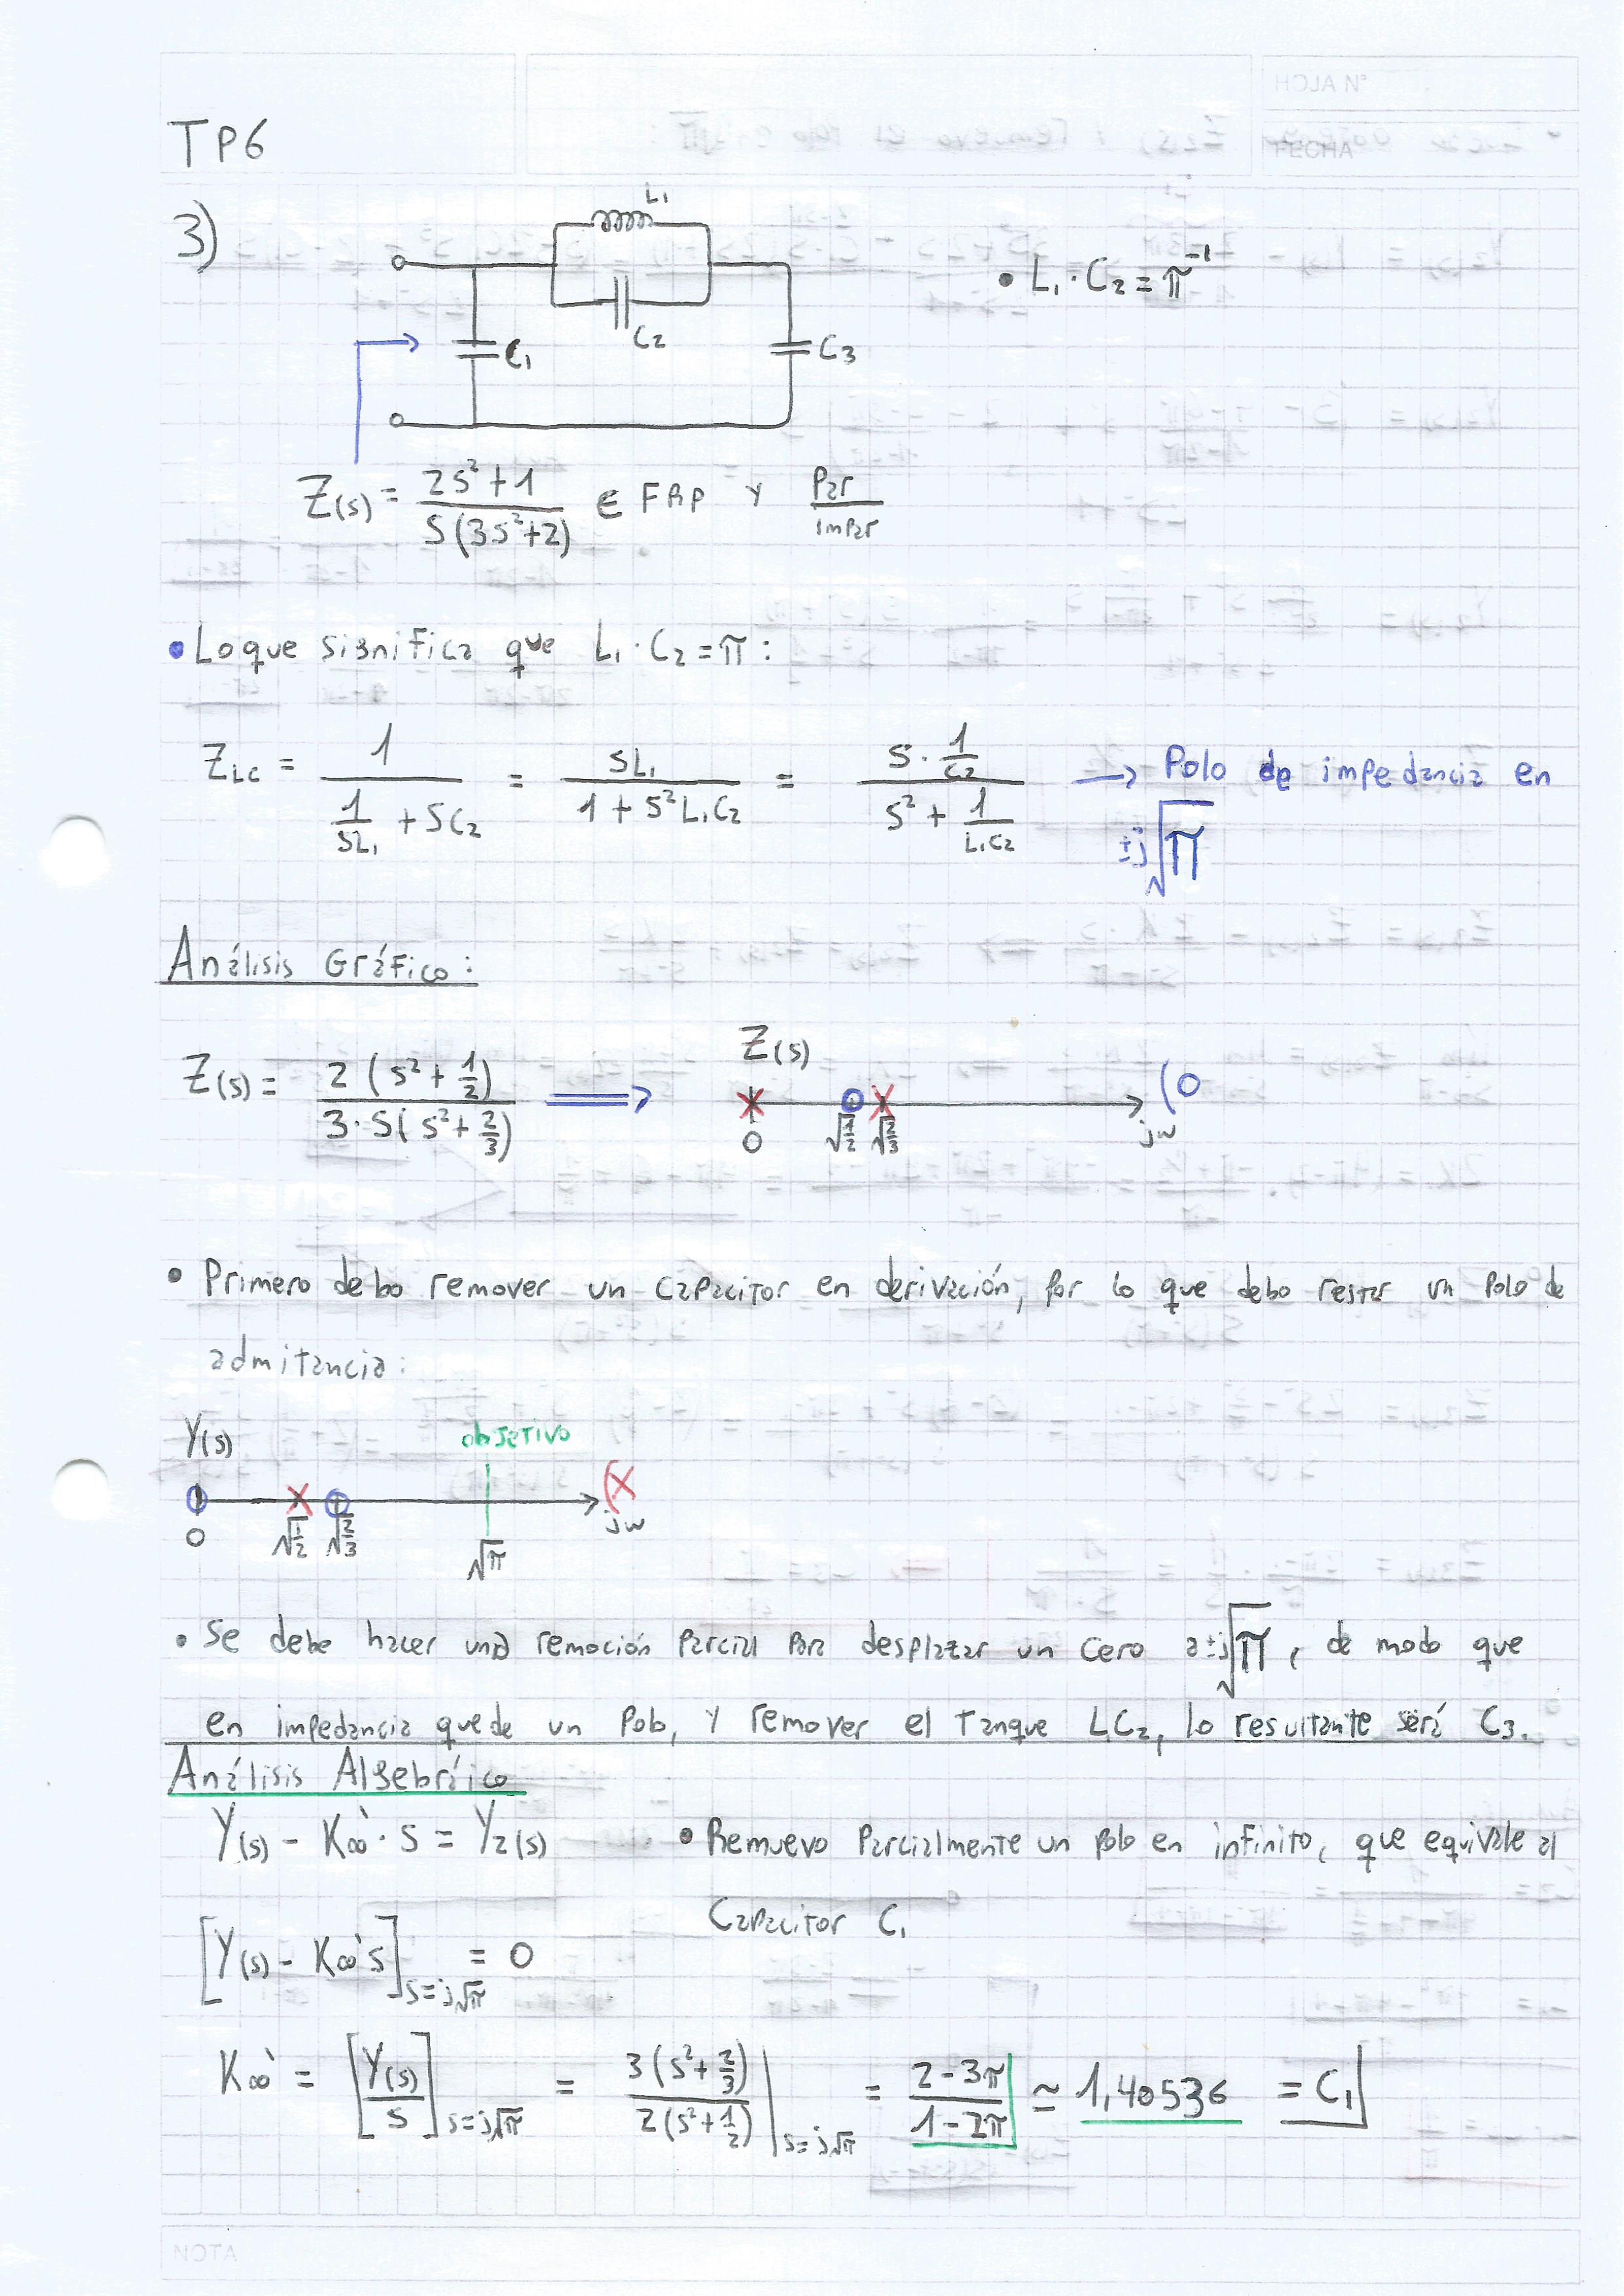 HOJA N°
FECHA
TP6
3)
L₁
C₂
C₁
C₃
• L₁ · C₂ = π⁻¹
Z(s) = (2s²+1) / (s(3s²+2)) ∈ FRP y Par/impar
• Lo que significa que L₁ · C₂ = π :
Z_LC = 1 / (1/(sL₁) + sC₂) = sL₁ / (1 + s²L₁C₂) = (s · 1/C₂) / (s² + 1/(L₁C₂)) → Polo de impedancia en
±j√π
Análisis Gráfico :
Z(s)
Z(s) = 2(s² + 1/2) / (3·s(s² + 2/3)) ⟹
0 √(1/2) √(2/3) jw
• Primero debo remover un capacitor en derivación, por lo que debo restar un polo de
admitancia :
Y(s) objetivo
0 √(1/2) √(2/3) √π jw
• Se debe hacer una remoción parcial para desplazar un cero a ±j√π, de modo que
en impedancia quede un polo, y remover el tanque LC₂, lo resultante será C₃.
Análisis Algebráico
Y(s) - K∞' · s = Y₂(s) • Remuevo parcialmente un polo en infinito, que equivale al
Capacitor C₁
[Y(s) - K∞' s]_{s=j√π} = 0
K∞' = [Y(s)/s]_{s=j√π} = 3(s² + 2/3) / 2(s² + 1/2) |_{s=j√π} = (2-3π)/(1-2π) ≃ 1,40536 = C₁
NOTA